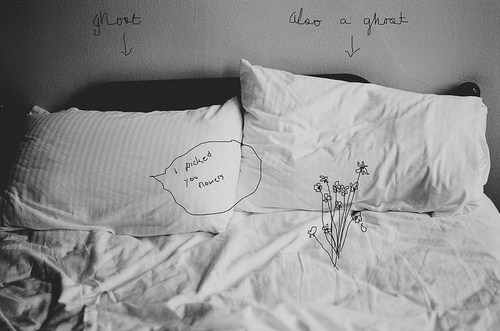 ghost
Also a ghost
I picked
you
flowers